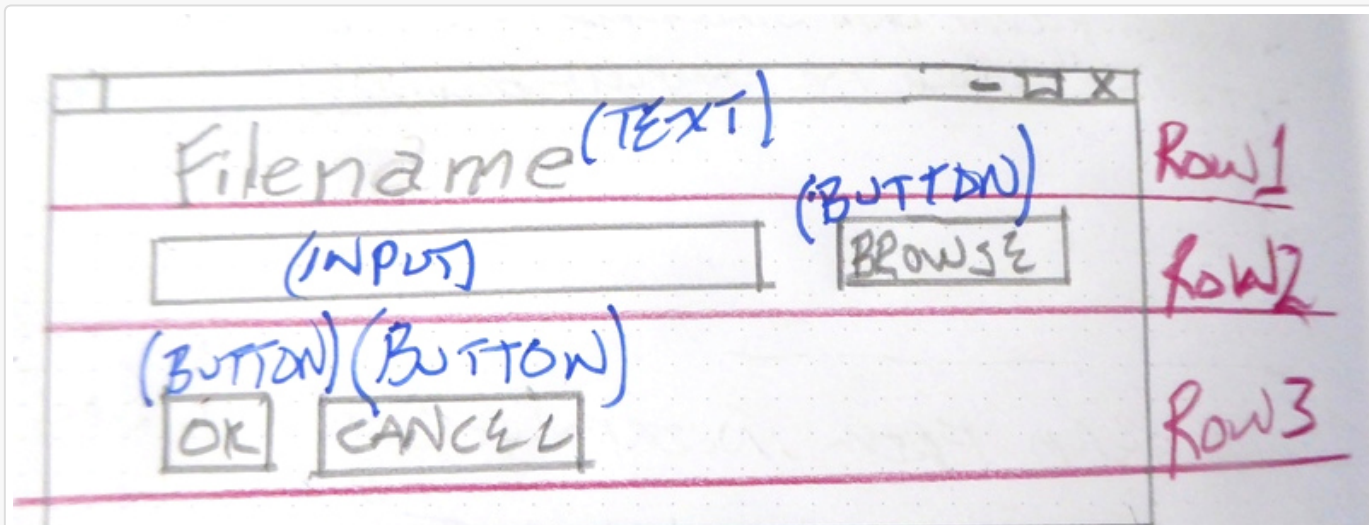 Filename (TEXT) Row1
(BUTTON)
(INPUT) BROWSE Row2
(BUTTON) (BUTTON)
OK CANCEL Row3